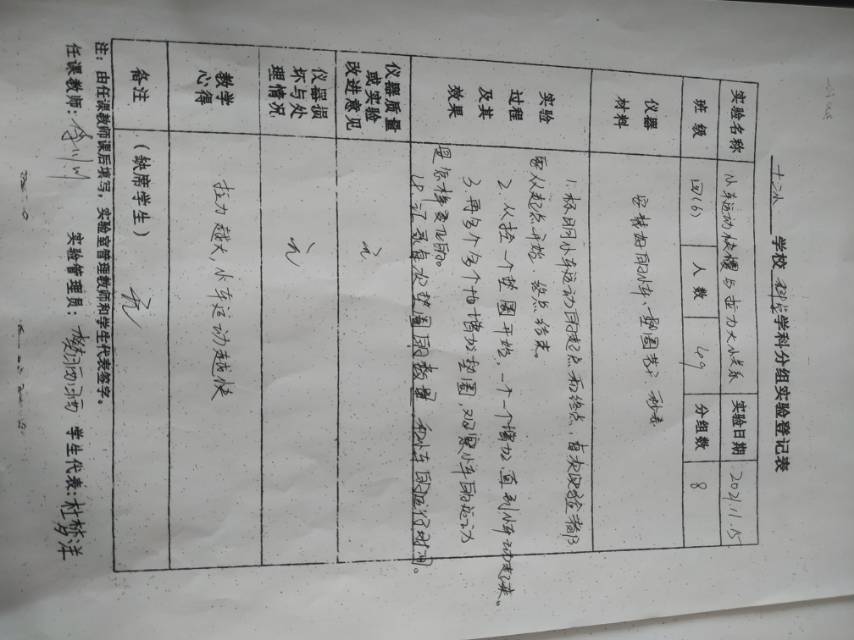 十二小 学校 科学 学科分组实验登记表
实验名称 小车运动快慢与拉力大小关系 实验日期 2021.11.15
班级 四(6) 人数 49 分组数 8
仪器材料 安装好的小车、垫圈若干 秒表
实验过程及其效果
1.标明小车运动的起点和终点，每次实验都
要从起点开始，终点结束。
2.从挂一个垫圈开始，一个一个增加，直到小车动起来。
3.再多个多个地增加垫圈，观察小车的运动
是怎样变化的。
记录每次垫圈的数量和小车的运行时间。
仪器质量或实验改进意见 无
仪器损坏与处理情况 无
教学心得 拉力越大，小车运动越快
备注 （缺席学生） 无
注：由任课教师课后填写，实验室管理教师和学生代表签字。
任课教师： 实验管理员： 学生代表：